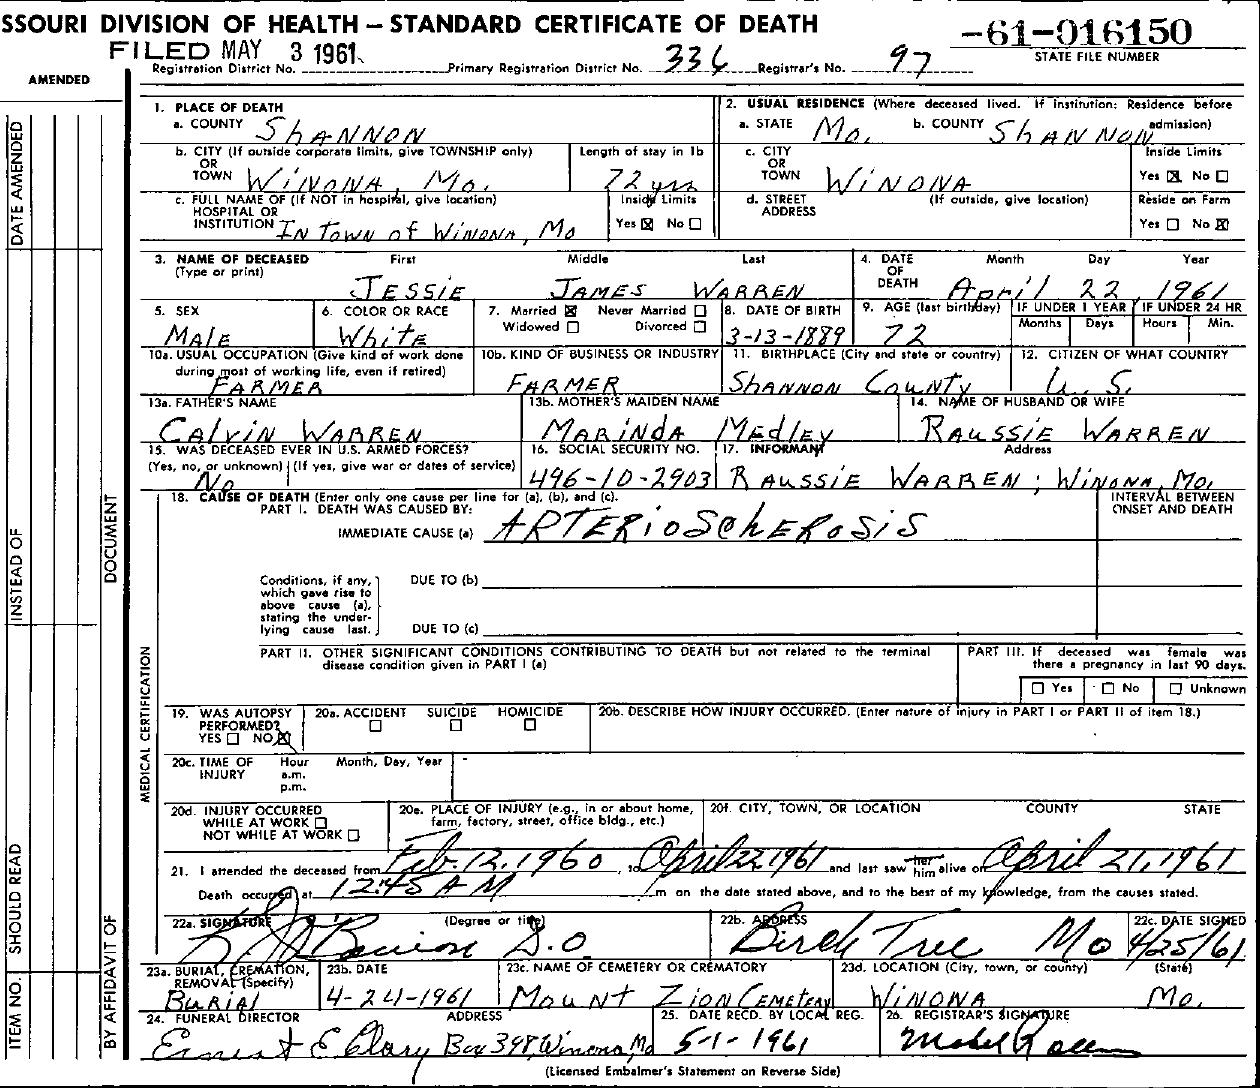 SSOURI DIVISION OF HEALTH – STANDARD CERTIFICATE OF DEATH
-61-016150
FILED MAY 3 1961
STATE FILE NUMBER
Registration District No. Primary Registration District No. 336 Registrar's No. 97
AMENDED
DATE AMENDED
INSTEAD OF
SHOULD READ
ITEM NO.
DOCUMENT
BY AFFIDAVIT OF
MEDICAL CERTIFICATION
1. PLACE OF DEATH
a. COUNTY SHANNON
2. USUAL RESIDENCE (Where deceased lived. If institution: Residence before admission)
a. STATE Mo. b. COUNTY SHANNON
b. CITY (If outside corporate limits, give TOWNSHIP only) OR TOWN WINONA, Mo.
Length of stay in 1b 72 yrs
c. CITY OR TOWN WINONA
Inside Limits Yes ☒ No ☐
c. FULL NAME OF (If NOT in hospital, give location) HOSPITAL OR INSTITUTION IN TOWN of WINONA, Mo
Inside Limits Yes ☒ No ☐
d. STREET ADDRESS (If outside, give location)
Reside on Farm Yes ☐ No ☒
3. NAME OF DECEASED (Type or print) First Middle Last
JESSIE JAMES WARREN
4. DATE OF DEATH Month Day Year
April 22, 1961
5. SEX
MALE
6. COLOR OR RACE
White
7. Married ☒ Never Married ☐
Widowed ☐ Divorced ☐
8. DATE OF BIRTH
3-13-1889
9. AGE (last birthday)
72
IF UNDER 1 YEAR Months Days
IF UNDER 24 HR Hours Min.
10a. USUAL OCCUPATION (Give kind of work done during most of working life, even if retired)
FARMER
10b. KIND OF BUSINESS OR INDUSTRY
FARMER
11. BIRTHPLACE (City and state or country)
SHANNON COUNTY
12. CITIZEN OF WHAT COUNTRY
U.S.
13a. FATHER'S NAME
CALVIN WARREN
13b. MOTHER'S MAIDEN NAME
MARINDA MEDLEY
14. NAME OF HUSBAND OR WIFE
RAUSSIE WARREN
15. WAS DECEASED EVER IN U.S. ARMED FORCES?
(Yes, no, or unknown) (If yes, give war or dates of service)
No
16. SOCIAL SECURITY NO.
496-10-2903
17. INFORMANT Address
RAUSSIE WARREN; WINONA, Mo.
18. CAUSE OF DEATH (Enter only one cause per line for (a), (b), and (c).
PART I. DEATH WAS CAUSED BY:
IMMEDIATE CAUSE (a) ARTERIOSCHEROSIS
INTERVAL BETWEEN ONSET AND DEATH
Conditions, if any, which gave rise to above cause (a), stating the underlying cause last.
DUE TO (b)
DUE TO (c)
PART II. OTHER SIGNIFICANT CONDITIONS CONTRIBUTING TO DEATH but not related to the terminal disease condition given in PART I (a)
PART III. If deceased was female was there a pregnancy in last 90 days.
☐ Yes ☐ No ☐ Unknown
19. WAS AUTOPSY PERFORMED?
YES ☐ NO ☒
20a. ACCIDENT ☐ SUICIDE ☐ HOMICIDE ☐
20b. DESCRIBE HOW INJURY OCCURRED. (Enter nature of injury in PART I or PART II of item 18.)
20c. TIME OF INJURY Hour a.m. p.m. Month, Day, Year
20d. INJURY OCCURRED
WHILE AT WORK ☐
NOT WHILE AT WORK ☐
20e. PLACE OF INJURY (e.g., in or about home, farm, factory, street, office bldg., etc.)
20f. CITY, TOWN, OR LOCATION COUNTY STATE
21. I attended the deceased from Feb. 12, 1960, to April 22 1961 and last saw her him alive on April 21, 1961
Death occurred at 12:45 A M m on the date stated above, and to the best of my knowledge, from the causes stated.
22a. SIGNATURE (Degree or title)
D.O
22b. ADDRESS
Birch Tree Mo
22c. DATE SIGNED
4/25/61
23a. BURIAL, CREMATION, REMOVAL (Specify)
BURIAL
23b. DATE
4-24-1961
23c. NAME OF CEMETERY OR CREMATORY
MOUNT ZION CEMETERY
23d. LOCATION (City, town, or county) (State)
WINONA Mo.
24. FUNERAL DIRECTOR ADDRESS
Ernest E Clary Box 398, Winona, Mo
25. DATE RECD. BY LOCAL REG.
5-1-1961
26. REGISTRAR'S SIGNATURE
Mabel
(Licensed Embalmer's Statement on Reverse Side)